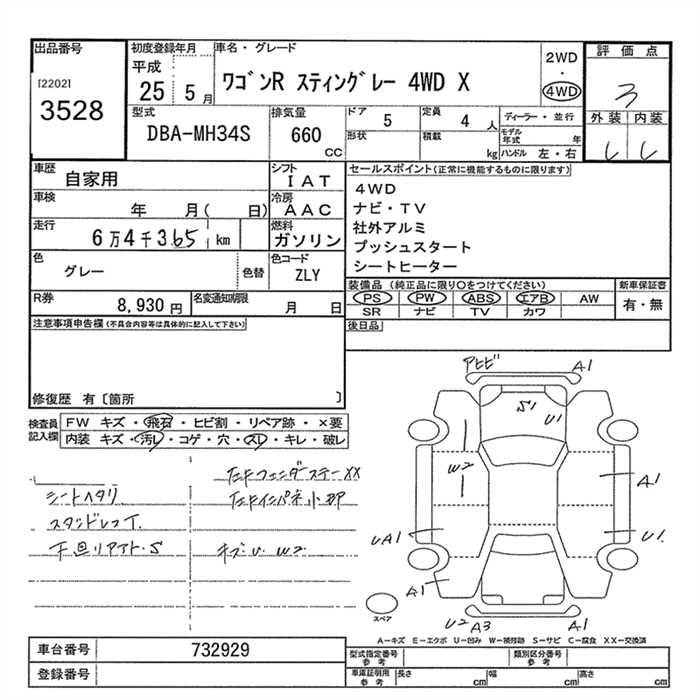 出品番号
[2202]
3528
初度登録年月
平成
25 5月
車名・グレード
ワゴンR スティングレー 4WD X
2WD
・
4WD
評価点
3
外装 内装
型式
DBA-MH34S
排気量
660
CC
ドア 5
定員 4 人
形状
積載 kg
ディーラー・並行
モデル年式 年
ハンドル 左・右
車歴
自家用
シフト
IAT
車検
年 月( 日)
冷房
AAC
走行
6万4千365 km
燃料
ガソリン
色
グレー
色替
色コード
ZLY
R券
8,930円
名変通知期限
月 日
セールスポイント(正常に機能するものに限ります)
4WD
ナビ・TV
社外アルミ
プッシュスタート
シートヒーター
装備品 (純正品に限り〇をつけてください)
PS PW ABS エアB AW
SR ナビ TV カワ
新車保証書
有・無
後日品
注意事項申告欄(不具合内容等は具体的に記入して下さい)
修復歴 有〔箇所 〕
検査員記入欄
FW キズ・飛石・ヒビ割・リペア跡・×要
内装 キズ・汚レ・コゲ・穴・スレ・キレ・破レ
シートヘタリ
下回リアト・S
キズU W2
A1
S1
U1
W2
A1
UA1
U1
A1
U2 A3
A1
スペア
A－キズ E－エクボ U－凹み W－補修跡 S－サビ C－腐食 XX－交換済
車台番号 732929
登録番号
型式指定番号 参考
類別区分番号 参考
車庫証明用 参考
長さ cm
幅 cm
高さ cm